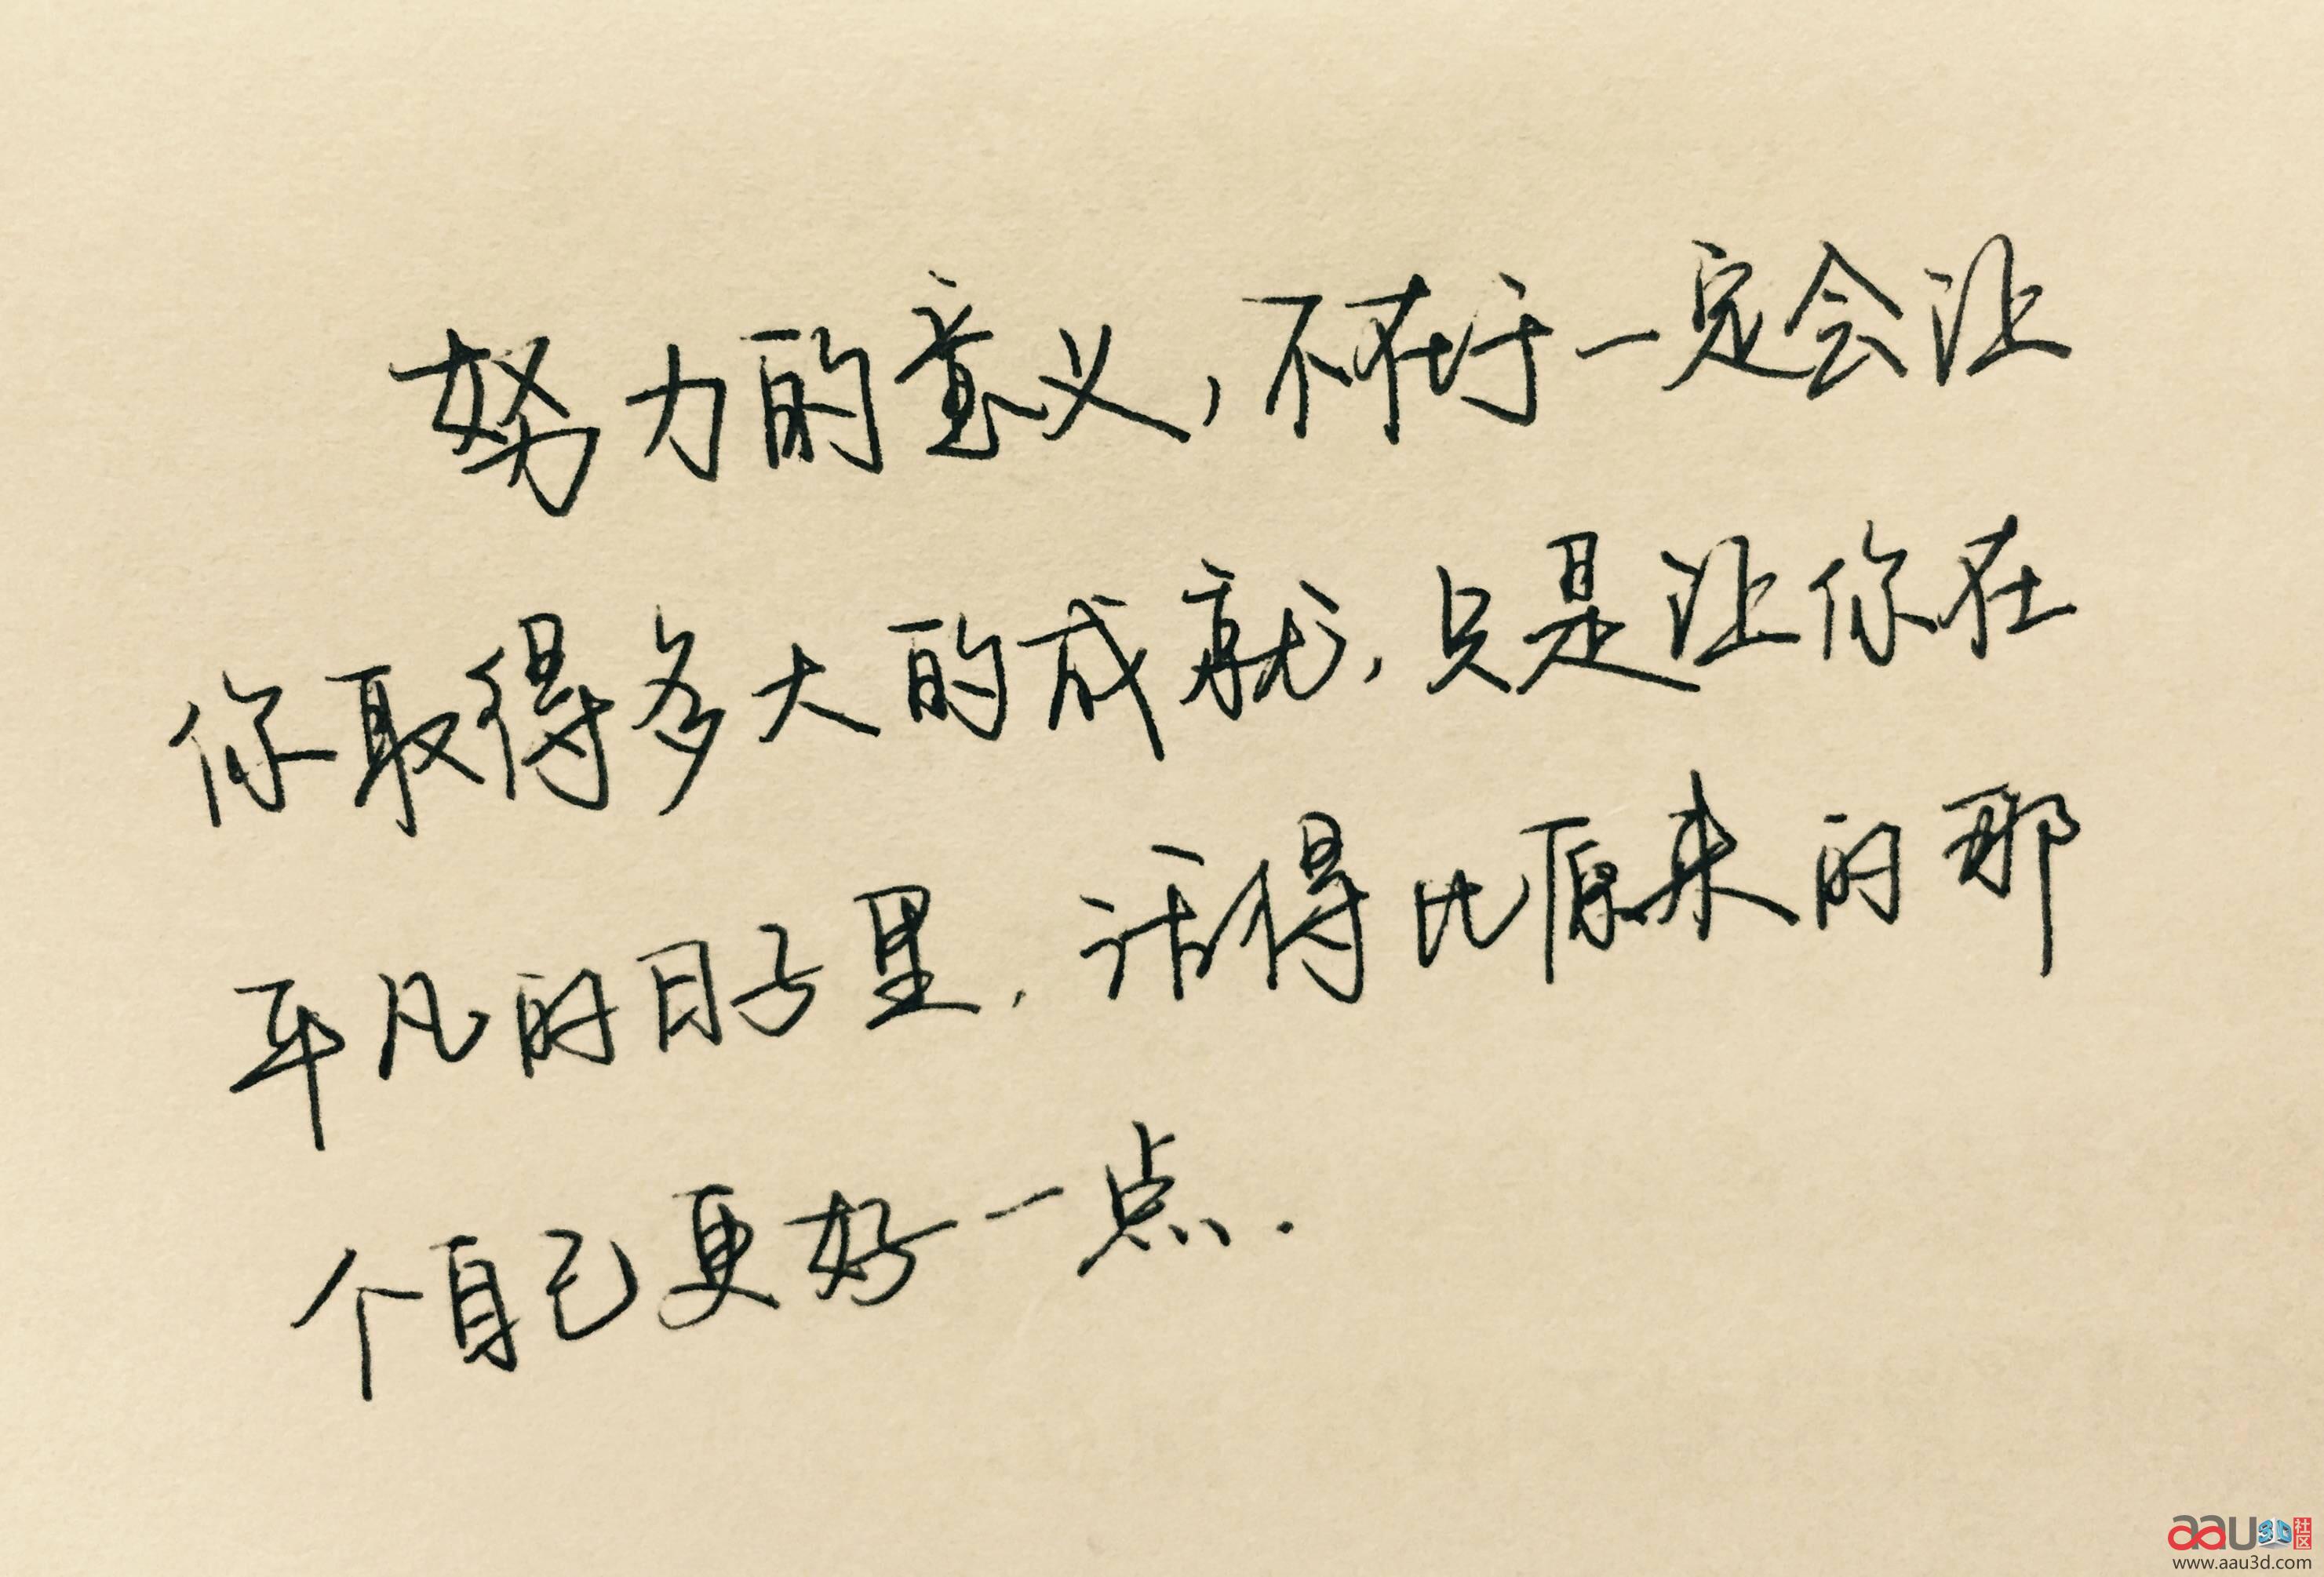 努力的意义,不在于一定会让
你取得多大的成就,只是让你在
平凡的日子里,活得比原来的那
个自己更好一点.
aau3D社区
www.aau3d.com